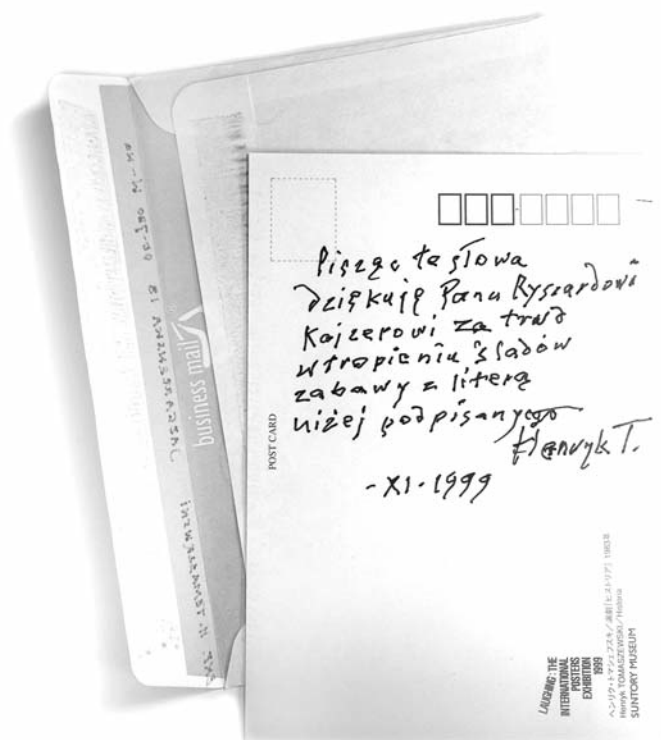 Pisząc te słowa
dziękuję Panu Ryszardowi
Kajzerowi za trud
w tropieniu śladów
zabawy z literą
niżej podpisanego
Henryk T.
-XI-1999
POST CARD
business mail
LAUGHING : THE
INTERNATIONAL
POSTERS
EXHIBITION
1999
ヘンリク・トマシェフスキ／演劇「ヒストリア」1983年
Henryk TOMASZEWSKI／Historia
SUNTORY MUSEUM